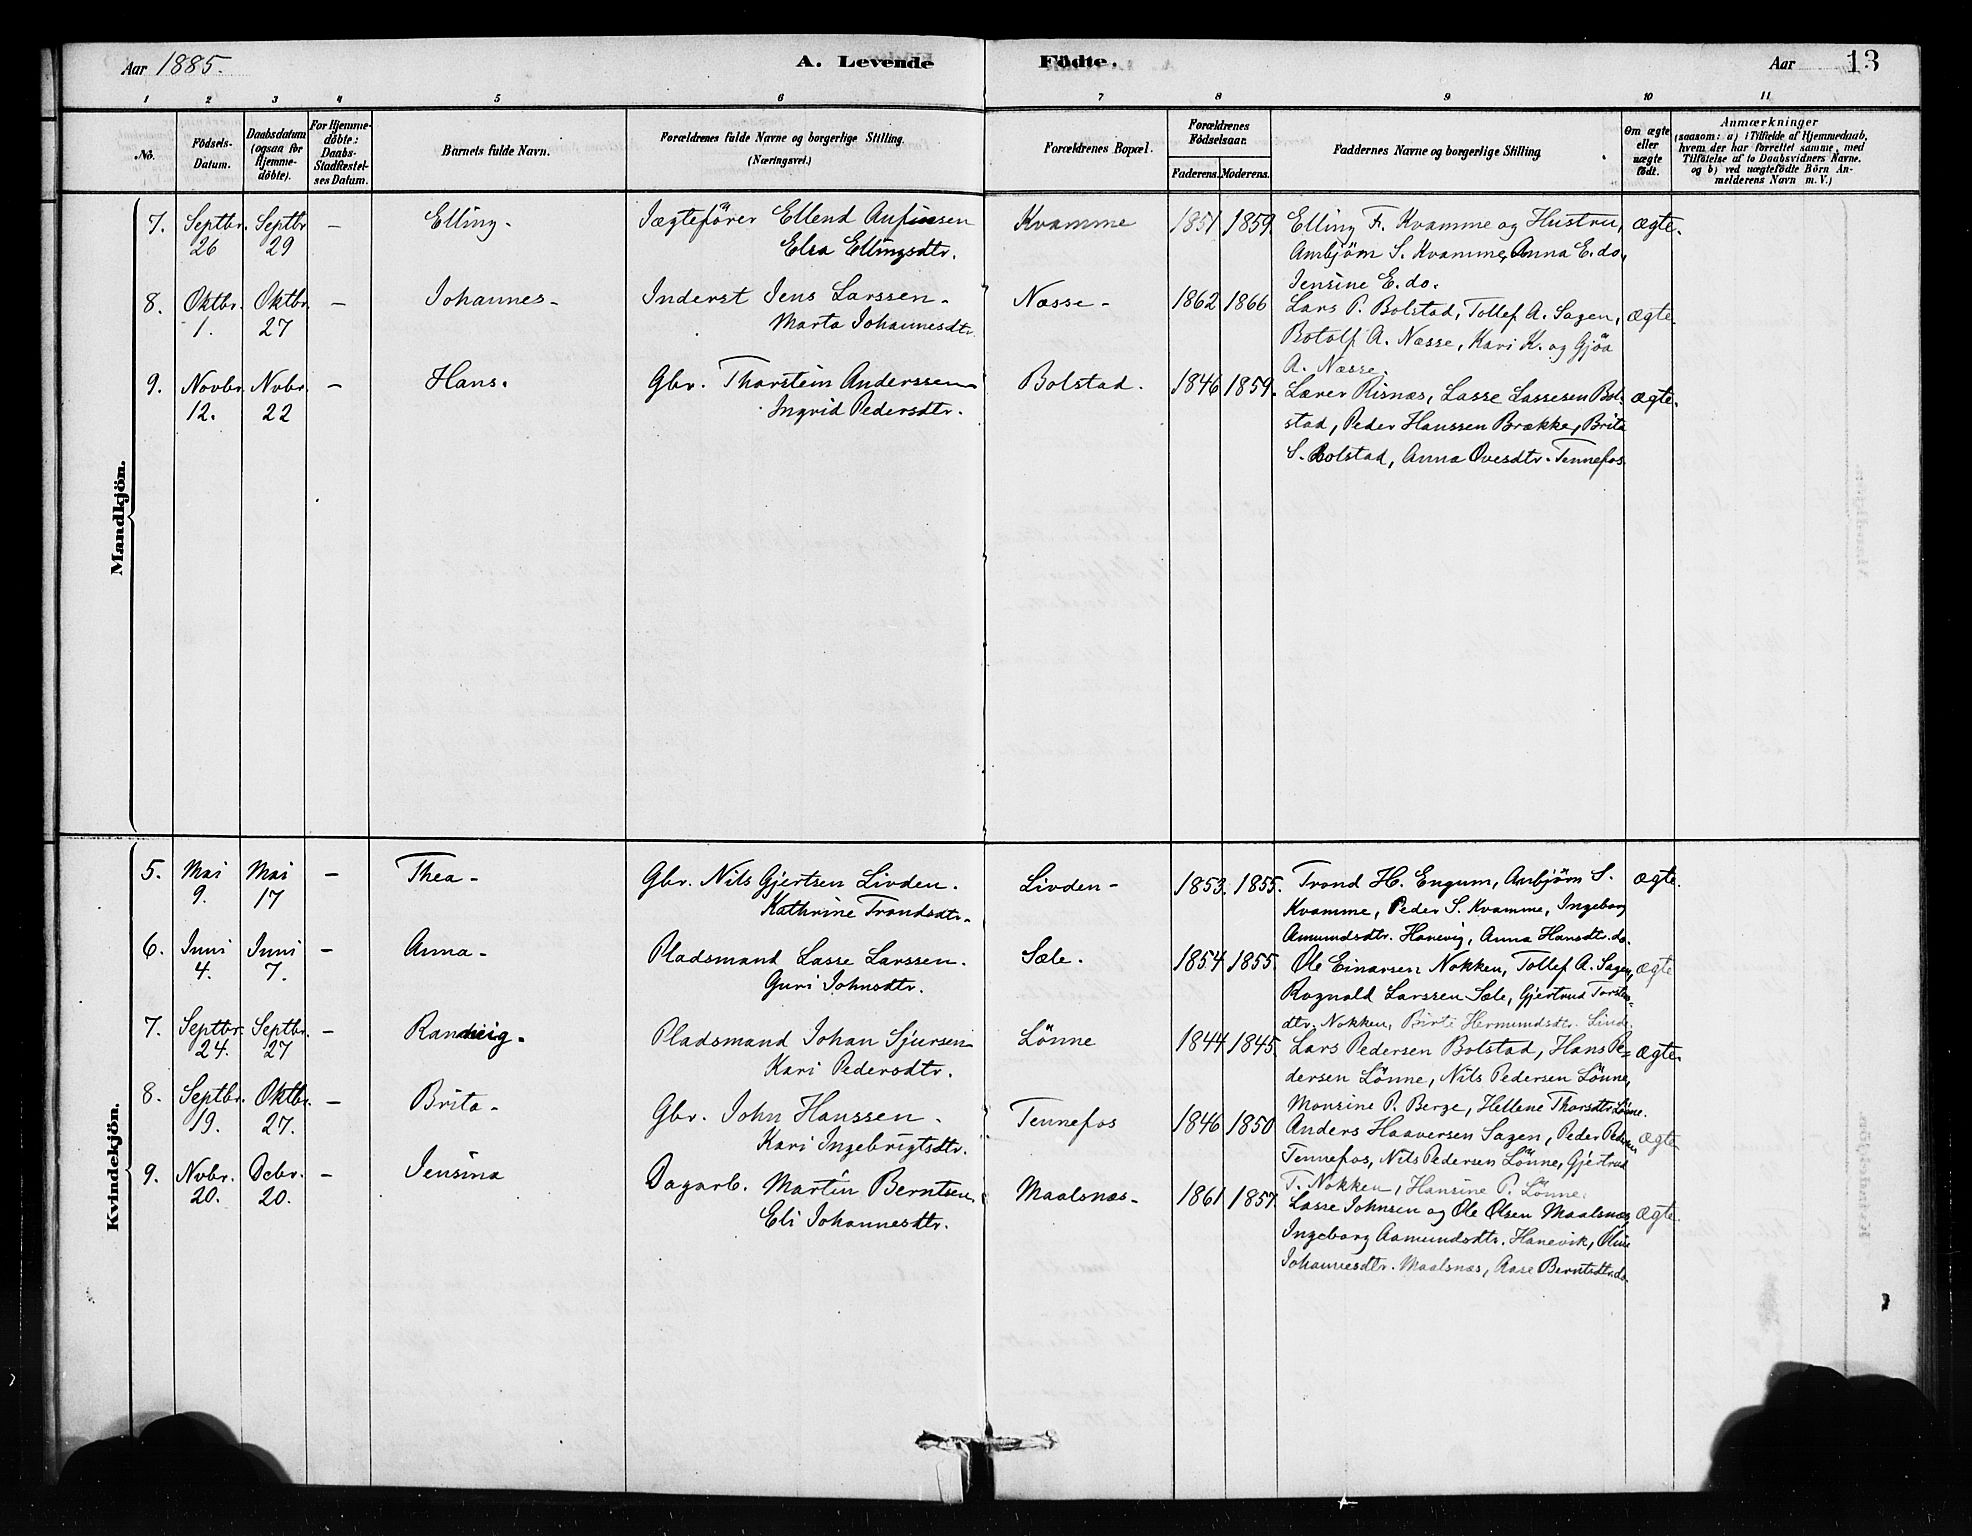 Aar 1885. A. Levende Födte. Aar 13
1 2 3 4 5 6 7 8 9 10 11
No. Födsels-Datum. Daabsdatum (ogsaa for Hjemme-döbte). For Hjemme-döbte: Daabs-Stadfæstel-ses Datum. Barnets fulde Navn. Forældrenes fulde Navne og borgerlige Stilling. (Næringsvei.) Forældrenes Bopæl. Forældrenes Födselsaar. Faderens. Moderens. Faddernes Navne og borgerlige Stilling. Om ægte eller uægte födt. Anmærkninger (saasom: a) i Tilfælde af Hjemmedaab, hvem der har forrettet samme, med Tilföielse af to Daabsvidners Navne. og b) ved uægtefödte Börn An-melderens Navn m. V.)
Mandkjön.
7. Septbr. Septbr. - Elling. Jægtefører Ellend Anfinsen Kvamme 1851 1859. Elling F. Kvamme og Hustru, ægte.
26 29 Elsa Ellingsdtr. Ambjörn S. Kvamme, Anna E. do.
Jensine E. do.
8. Oktbr. Oktbr. - Johannes- Inderst Jens Larssen- Næsse- 1862 1866 Lars P. Bolstad, Tollef A. Sagen, ægte.
1. 27 Marta Johannesdtr. Botolf A. Næsse, Kari K. og Gjöa
A. Næsse.
9. Novbr. Nvbr. - Hans. Gbr. Thorstein Anderssen Bolstad. 1846 1859. Lærer Risnæs, Lasse Lassesen Bol- ægte.
12. 22 Ingrid Pedersdtr. stad, Peder Hanssen Brække, Brita
S. Bolstad, Anna Ovesdtr. Tennefos
Kvindekjön.
5. Mai Mai - Thea- Gbr. Nils Gjertsen Livden. Livden- 1853. 1855. Trond H. Engum, Anbjörn S. ægte.
9. 17 Kathrine Trondsdtr. Kvamme, Peder S. Kvamme, Ingeborg
Amundsdtr. Hanevig, Anna Hansdtr. do.
6. Juni Juni - Anna- Pladsmand Lasse Larssen. Sæle. 1854 1855. Ole Einarsen Nokken, Tollef A. Sagen, ægte
4. 7. Guri Johnsdtr. Rognald Larssen Sæle, Gjertrud Torsten-
dtr. Nokken, Birte Hermundsdtr.
7. Septbr. Septbr. - Randveig. Pladsmand Johan Sjursen Lönne 1844 1845. Lars Pedersen Bolstad, Hans Pe= ægte.
24. 27 Kari Pedersdtr. dersen Lönne, Nils Pedersen Lönne,
Monsine P. Berge, Hellene Thorsdtr. Lönne.
8. Septbr. Oktbr. - Brita- Gbr. John Hanssen. Tennefos 1846 1850 Anders Haaversen Sagen, Peder Pedersen ægte
19. 27. Kari Ingebrigtsdtr. Tennefos, Nils Pedersen Lönne, Gjertrud
T. Nokken, Hansine P. Lönne.
9. Nvbr. Debr. - Jensina Dagarb. Martin Berntsen. Maalsnæs- 1861 1857. Lasse Johnsen og Ole Olsen Maalsnæs, ægte.
20. 20. Eli Johannesdtr. Ingeborg Aamundsdtr. Hanevik, Oline
Johannesdtr. Maalsnæs, Aase Berntsdtr. do.